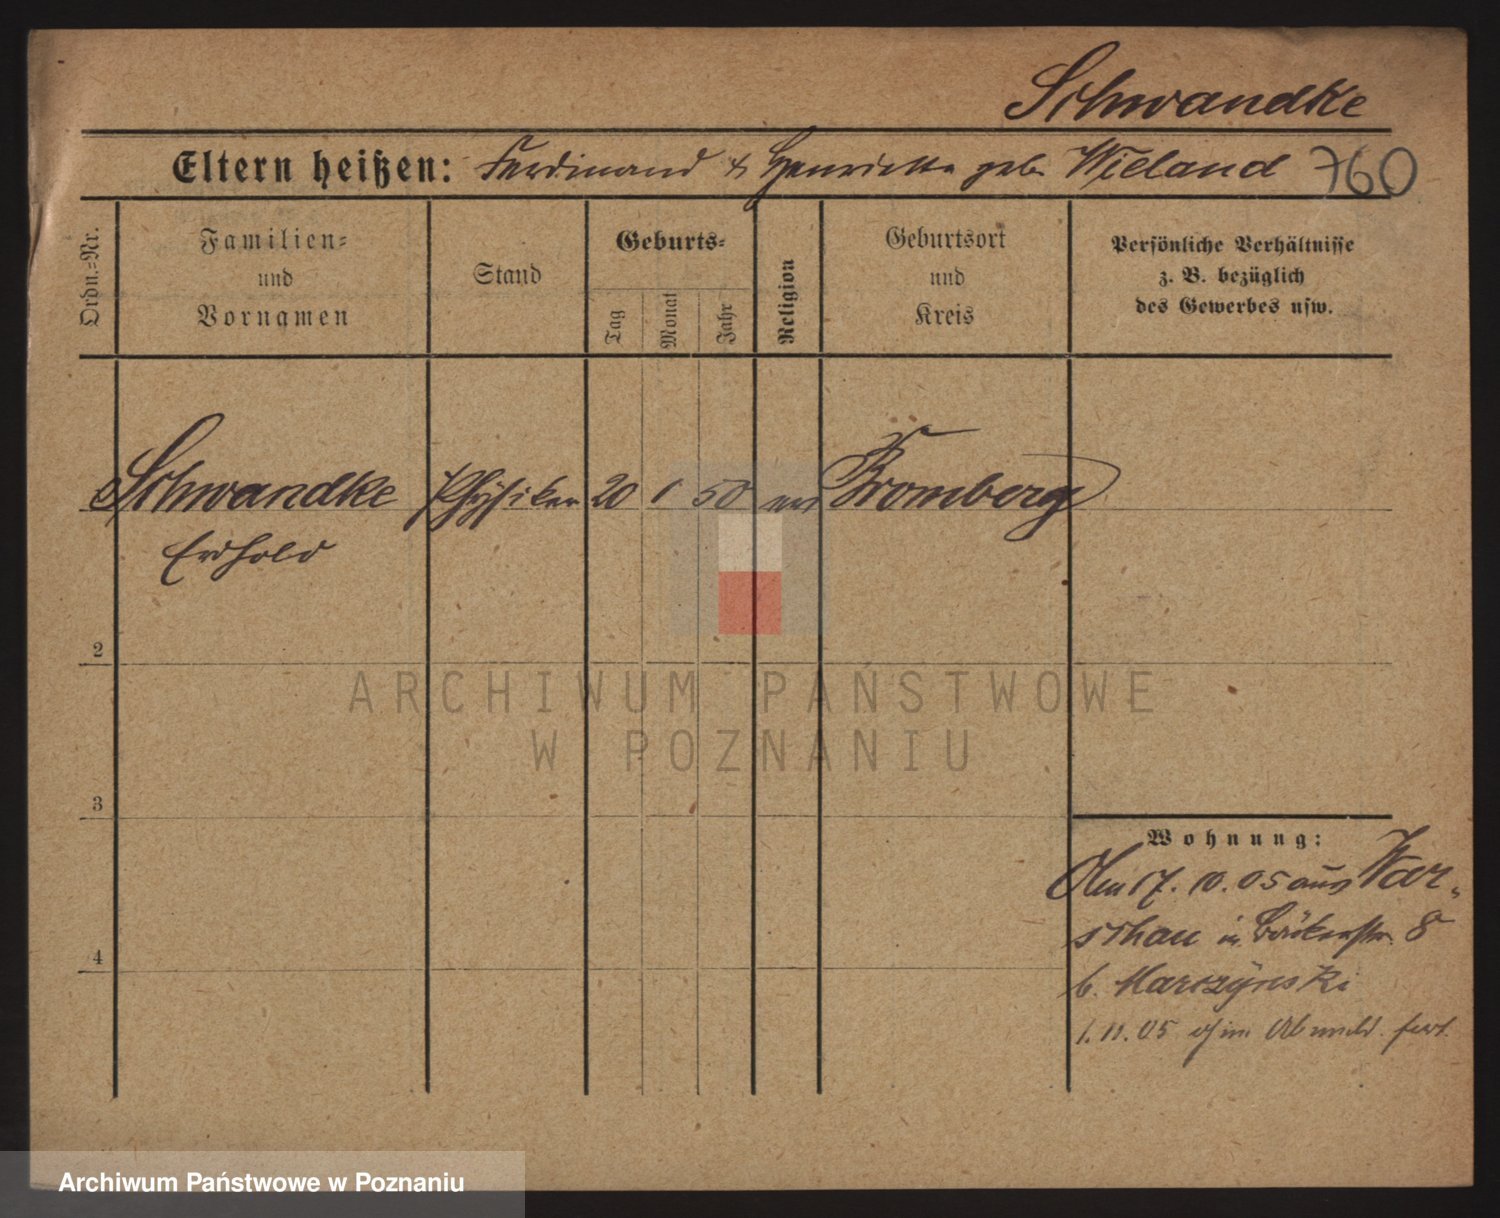 Schwandke
Eltern heißen: Ferdinand & Henriette geb. Wieland 760
Ordn.=Nr.
Familien=
und
Vornamen
Stand
Geburts=
Tag
Monat
Jahr
Religion
Geburtsort
und
Kreis
Persönliche Verhältnisse
z. B. bezüglich
des Gewerbes usw.
Schwandke Physiker 20 1 50 Bromberg
2
ARCHIWUM PAŃSTWOWE
W POZNANIU
3
4
Wohnung:
17. 10. 05 aus War-
schau in Bäckerstr. 8
b. Marczynski
1. 11. 05 ohne Abmeld. fort.
Archiwum Państwowe w Poznaniu